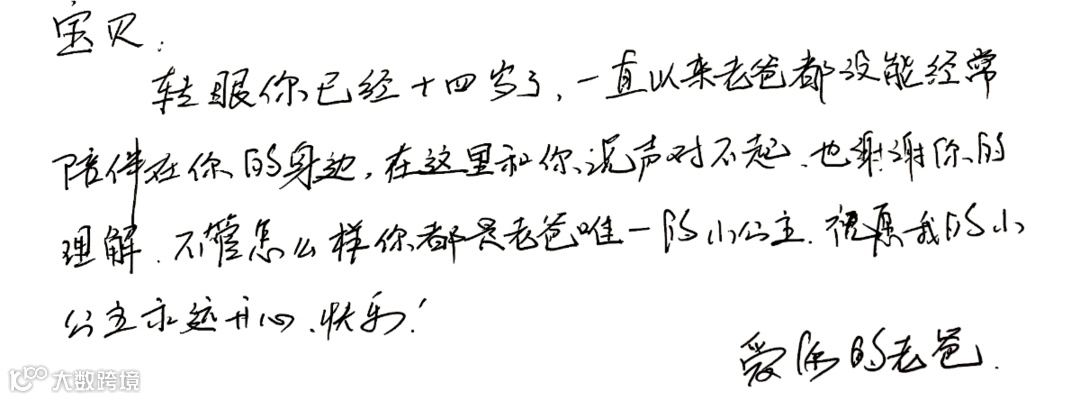 宝贝：
转眼你已经十四岁了，一直以来老爸都没能经常
陪伴在你的身边，在这里和你说声对不起、也谢谢你的
理解、不管怎么样你都是老爸唯一的小公主、祝愿我的小
公主永远开心、快乐！
爱你的老爸.
大数跨境